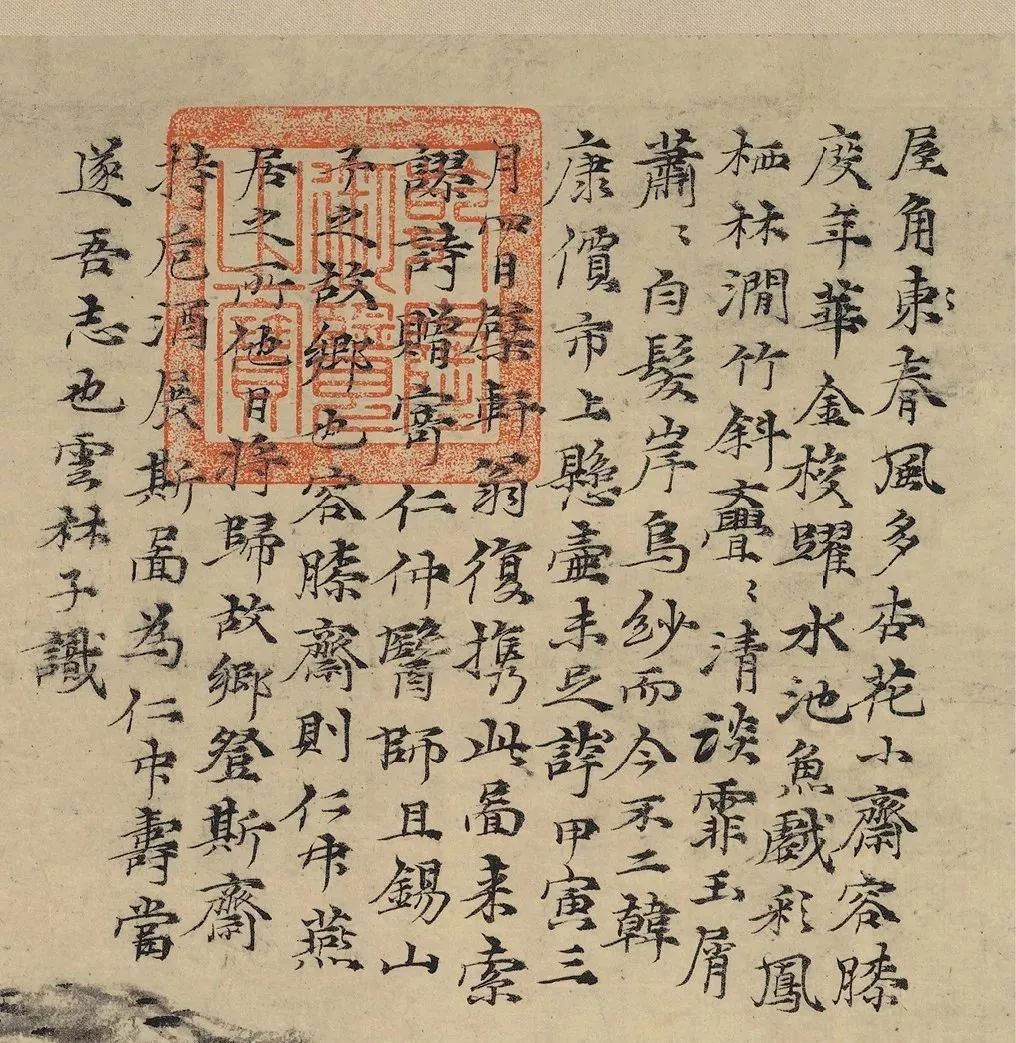 屋角東〻春風多杏花小齋容膝
度年華金梭躍水池魚戲彩鳳
栖林澗竹斜亹〻清談霏玉屑
蕭〻白髮岸烏紗而今不二韓
康價市上懸壺未足誇甲寅三
月四日檗軒翁復携此啚来索
謬詩贈寄仁仲醫師且錫山
予之故鄉也容膝齋則仁中燕
居之所他日將歸故鄉登斯齋
持卮酒展斯啚為仁中壽當
遂吾志也雲林子識
乾隆
御覽
之寶